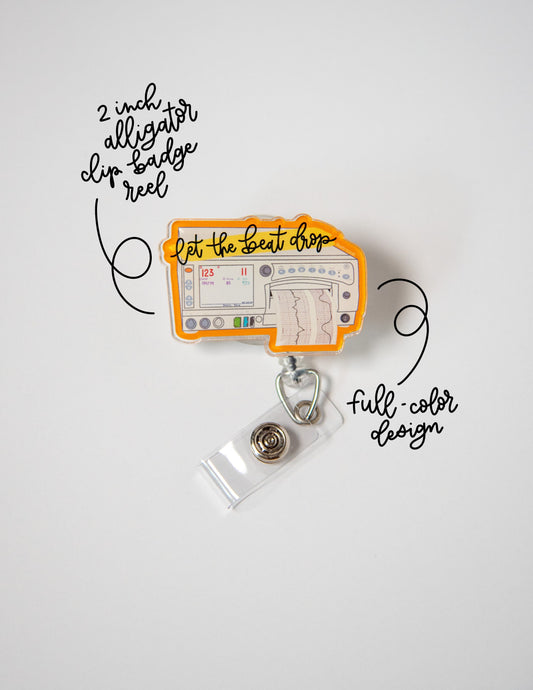 2 inch
alligator
clip badge
reel
let the beat drop
123 11
full-color
design